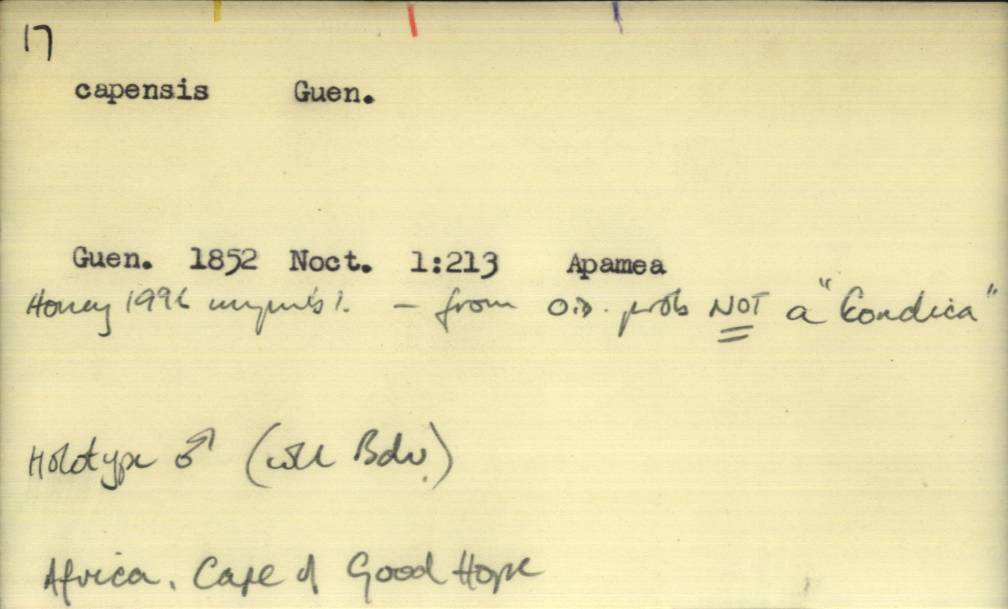 17
capensis Guen.
Guen. 1852 Noct. 1:213 Apamea
Honey 1996 unpubl. – from O.D. prob NOT a "Condica"
Holotype ♂ (coll Bdv.)
Africa. Cape of Good Hope